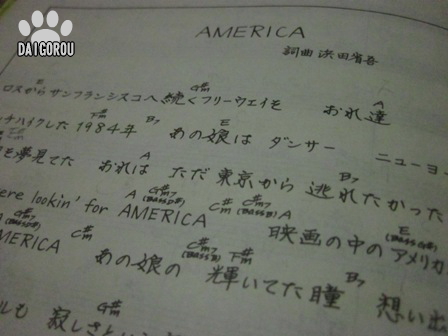 DAIGOROU
AMERICA
詞曲 浜田省吾
E G#m A
ロスからサンフランシスコへ 続くフリーウェイを おれ達
F#m B7 E
チハイクした 1984年 あの娘は ダンサー ニューヨー
A B7
を夢見てた おれは ただ 東京から 逃れたかった
A G#m7 (BASS D#) C#m C#m7 (BASS B) A E (BASS G#)
were lookin' for AMERICA 映画の中の アメリカ
G#m7 (BASS D#) C#m C#m7 (BASS B) F#m B7
AMERICA あの娘の 輝いてた 瞳 想い出
G#m
ルも 寂しさという